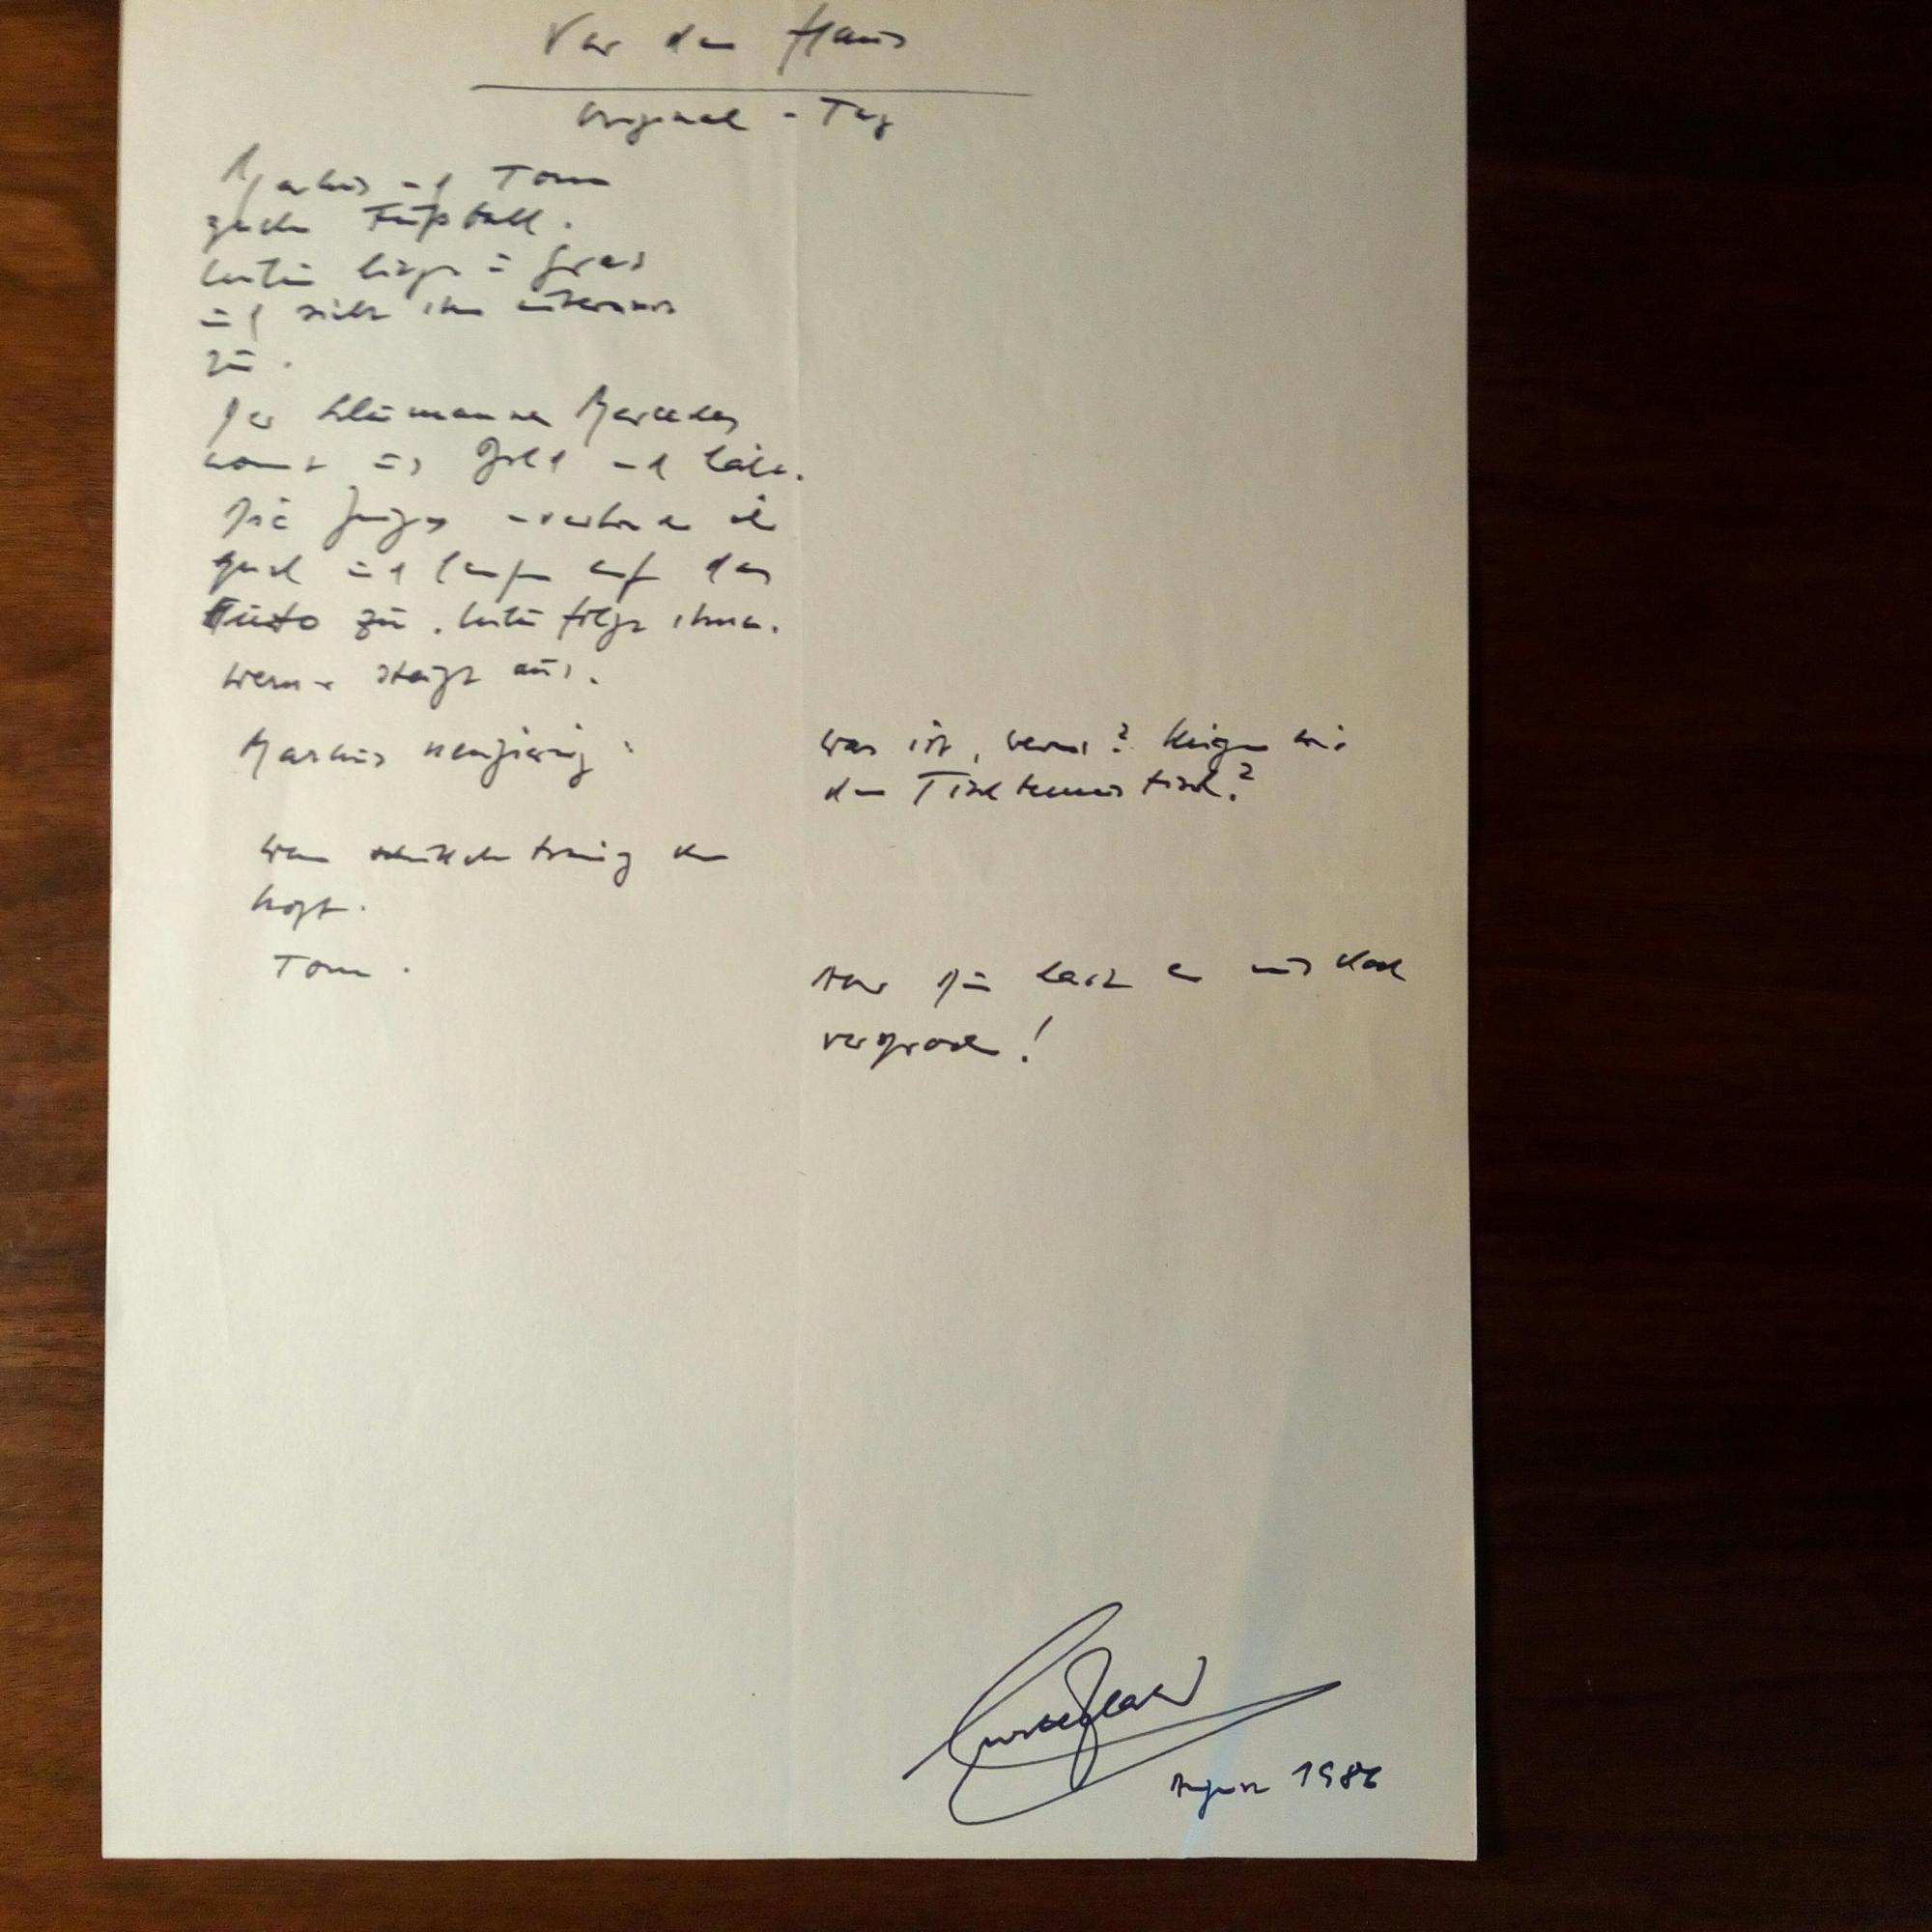 Vor dem Haus
Original - Tag
Markus und Tom
spielen Fußball.
liegt im Gras
und sieht ihnen interessiert
zu.
Der Mercedes
kommt und hält.
Die Jungen unterbrechen ihr
Spiel und laufen auf das
Auto zu. folgt ihnen.
Werner steigt aus.
Markus neugierig:
Was ist, Werner? Kriegen wir
den Tischtennistisch?
Werner schüttelt traurig den
Kopf.
Tom.
Aber Du hast es uns doch
versprochen!
August 1986